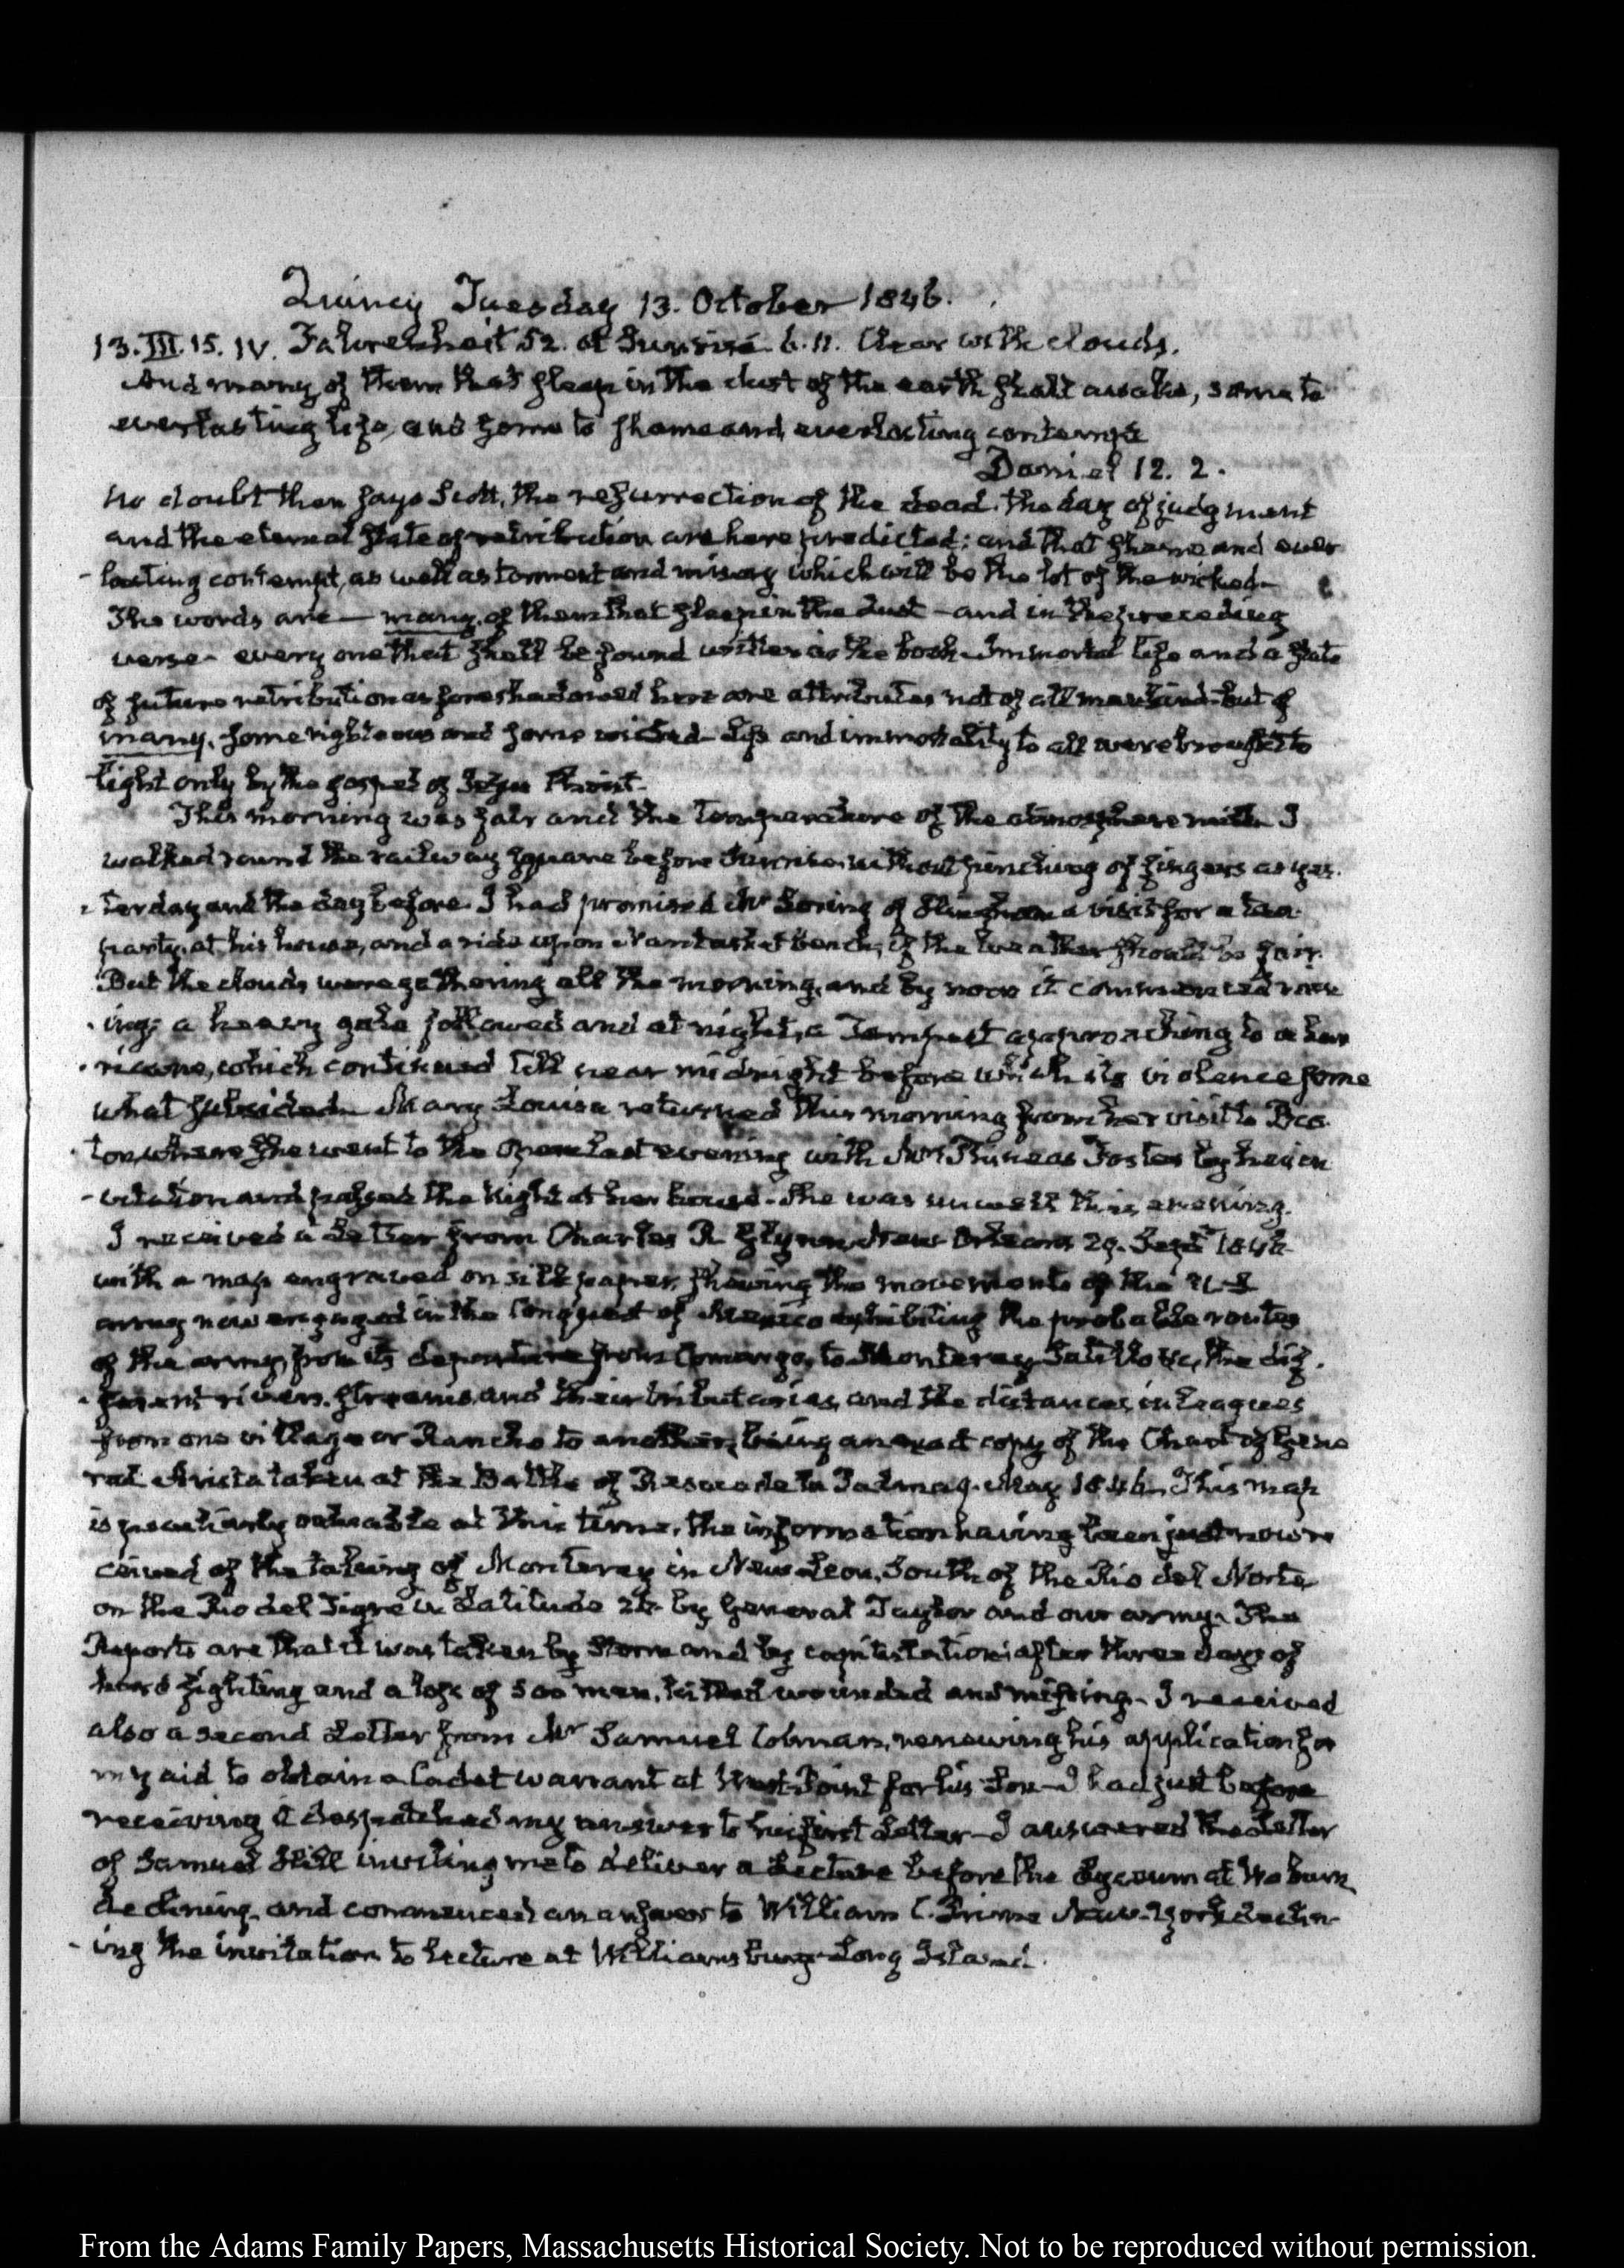 Quincy Tuesday 13. October 1846.
13. III. 15. IV. Fahrenheit 52. at Sunrise 6.11. Clear with clouds.
And many of them that sleep in the dust of the earth shall awake, some to
everlasting life, and some to shame and everlasting contempt
Daniel 12. 2.
No doubt then says Scott, the resurrection of the dead, the day of judgment
and the eternal state of retribution are here predicted: and that shame and ever
-lasting contempt, as well as torment and misery which will be the lot of the wicked—
The words are — many of them that sleep in the dust — and in the preceding
verse — every one that shall be found written in the book — Immortal life and a state
of future retribution as foreshadowed here are attributes not of all mankind — but of
many, some righteous and some wicked — Life and immortality to all were brought to
light only by the gospel of Jesus Christ—
This morning was fair and the temperature of the atmosphere mild. I
walked round the railway square before sunrise without pinching of fingers as yes-
-terday and the day before. I had promised Mr Loring of Hingham a visit for a tea
party at his house, and a ride upon Nantasket beach, if the weather should be fair.
But the clouds were gathering all the morning, and by noon it commenced rain
-ing; a heavy gale followed and at night, a Tempest approaching to a hur
-ricane, which continued till near midnight before which its violence some
what subsided— Mary Louisa returned this morning from her visit to Bos-
-ton, where she went to the Opera last evening with Mrs Phineas Foster by her in
-vitation and passed the Night at her house. She was unwell this evening.
I received a Letter from Charles R. Glynn New Orleans 29. Septr 1846
with a map engraved on silk paper, showing the movements of the U.S.
army now engaged in the Conquest of Mexico exhibiting the probable routes
of the army from its departure from Comargo, to Monterey Saltillo &c, the dif-
-ferent rivers, streams and their tributaries, and the distances in leagues
from one village or Rancho to another, being an exact copy of the Chart of Gene
ral Arista taken at the Battle of Resaca de la Palma 9. May 1846— This map
is peculiarly valuable at this time, the information having been just now re
ceived of the taking of Monterey in New Leon, South of the Rio del Norte
on the Rio del Tigre in Latitude 26 by General Taylor and our army. The
Reports are that it was taken by Storm and by capitulation after three days of
hard fighting and a loss of 500 men, killed wounded and missing— I received
also a second Letter from Mr Samuel Colman, renewing his application for
my aid to obtain a Cadet warrant at West-Point for his Son— I had just before
receiving it despatched my answer to his first Letter— I answered the Letter
of Samuel Hill inviting me to deliver a Lecture before the Lyceum at Woburn
declining— and commenced an answer to William C. Prime New-York declin-
-ing the invitation to lecture at Williamsburg Long Island.
From the Adams Family Papers, Massachusetts Historical Society. Not to be reproduced without permission.